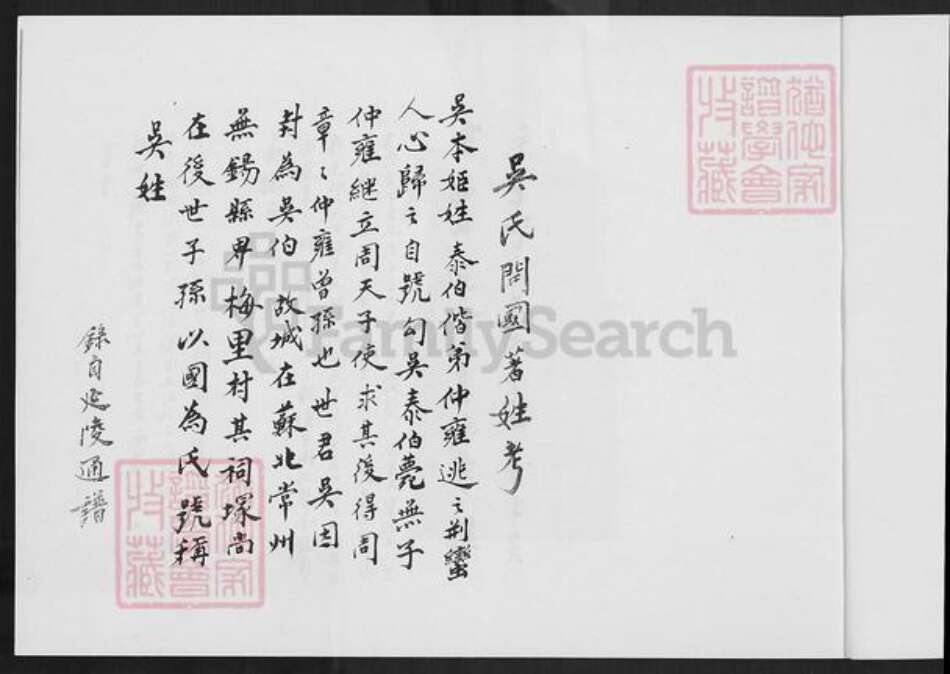 吳氏開國著姓考
吳本姬姓泰伯偕弟仲雍逃之荆蠻
人心歸之自號勾吳泰伯薨無子
仲雍繼立周天子使求其後得周
章〻仲雍曾孫也世君吳因
封為吳伯故城在蘇北常州
無錫縣界梅里村其祠塚尚
在後世子孫以國為氏號稱
吳姓
錄自延陵通譜
譜學會
收藏
FamilySearch